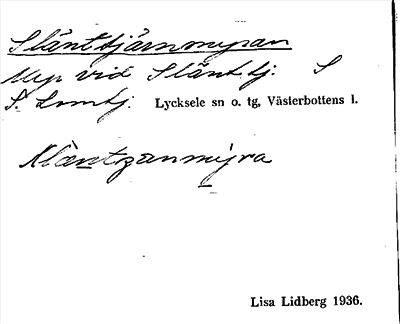 Släntjärnmyran
Myr vid Släntj. S
S. Lomtj. Lycksele sn o. tg, Västerbottens l.
Lisa Lidberg 1936.